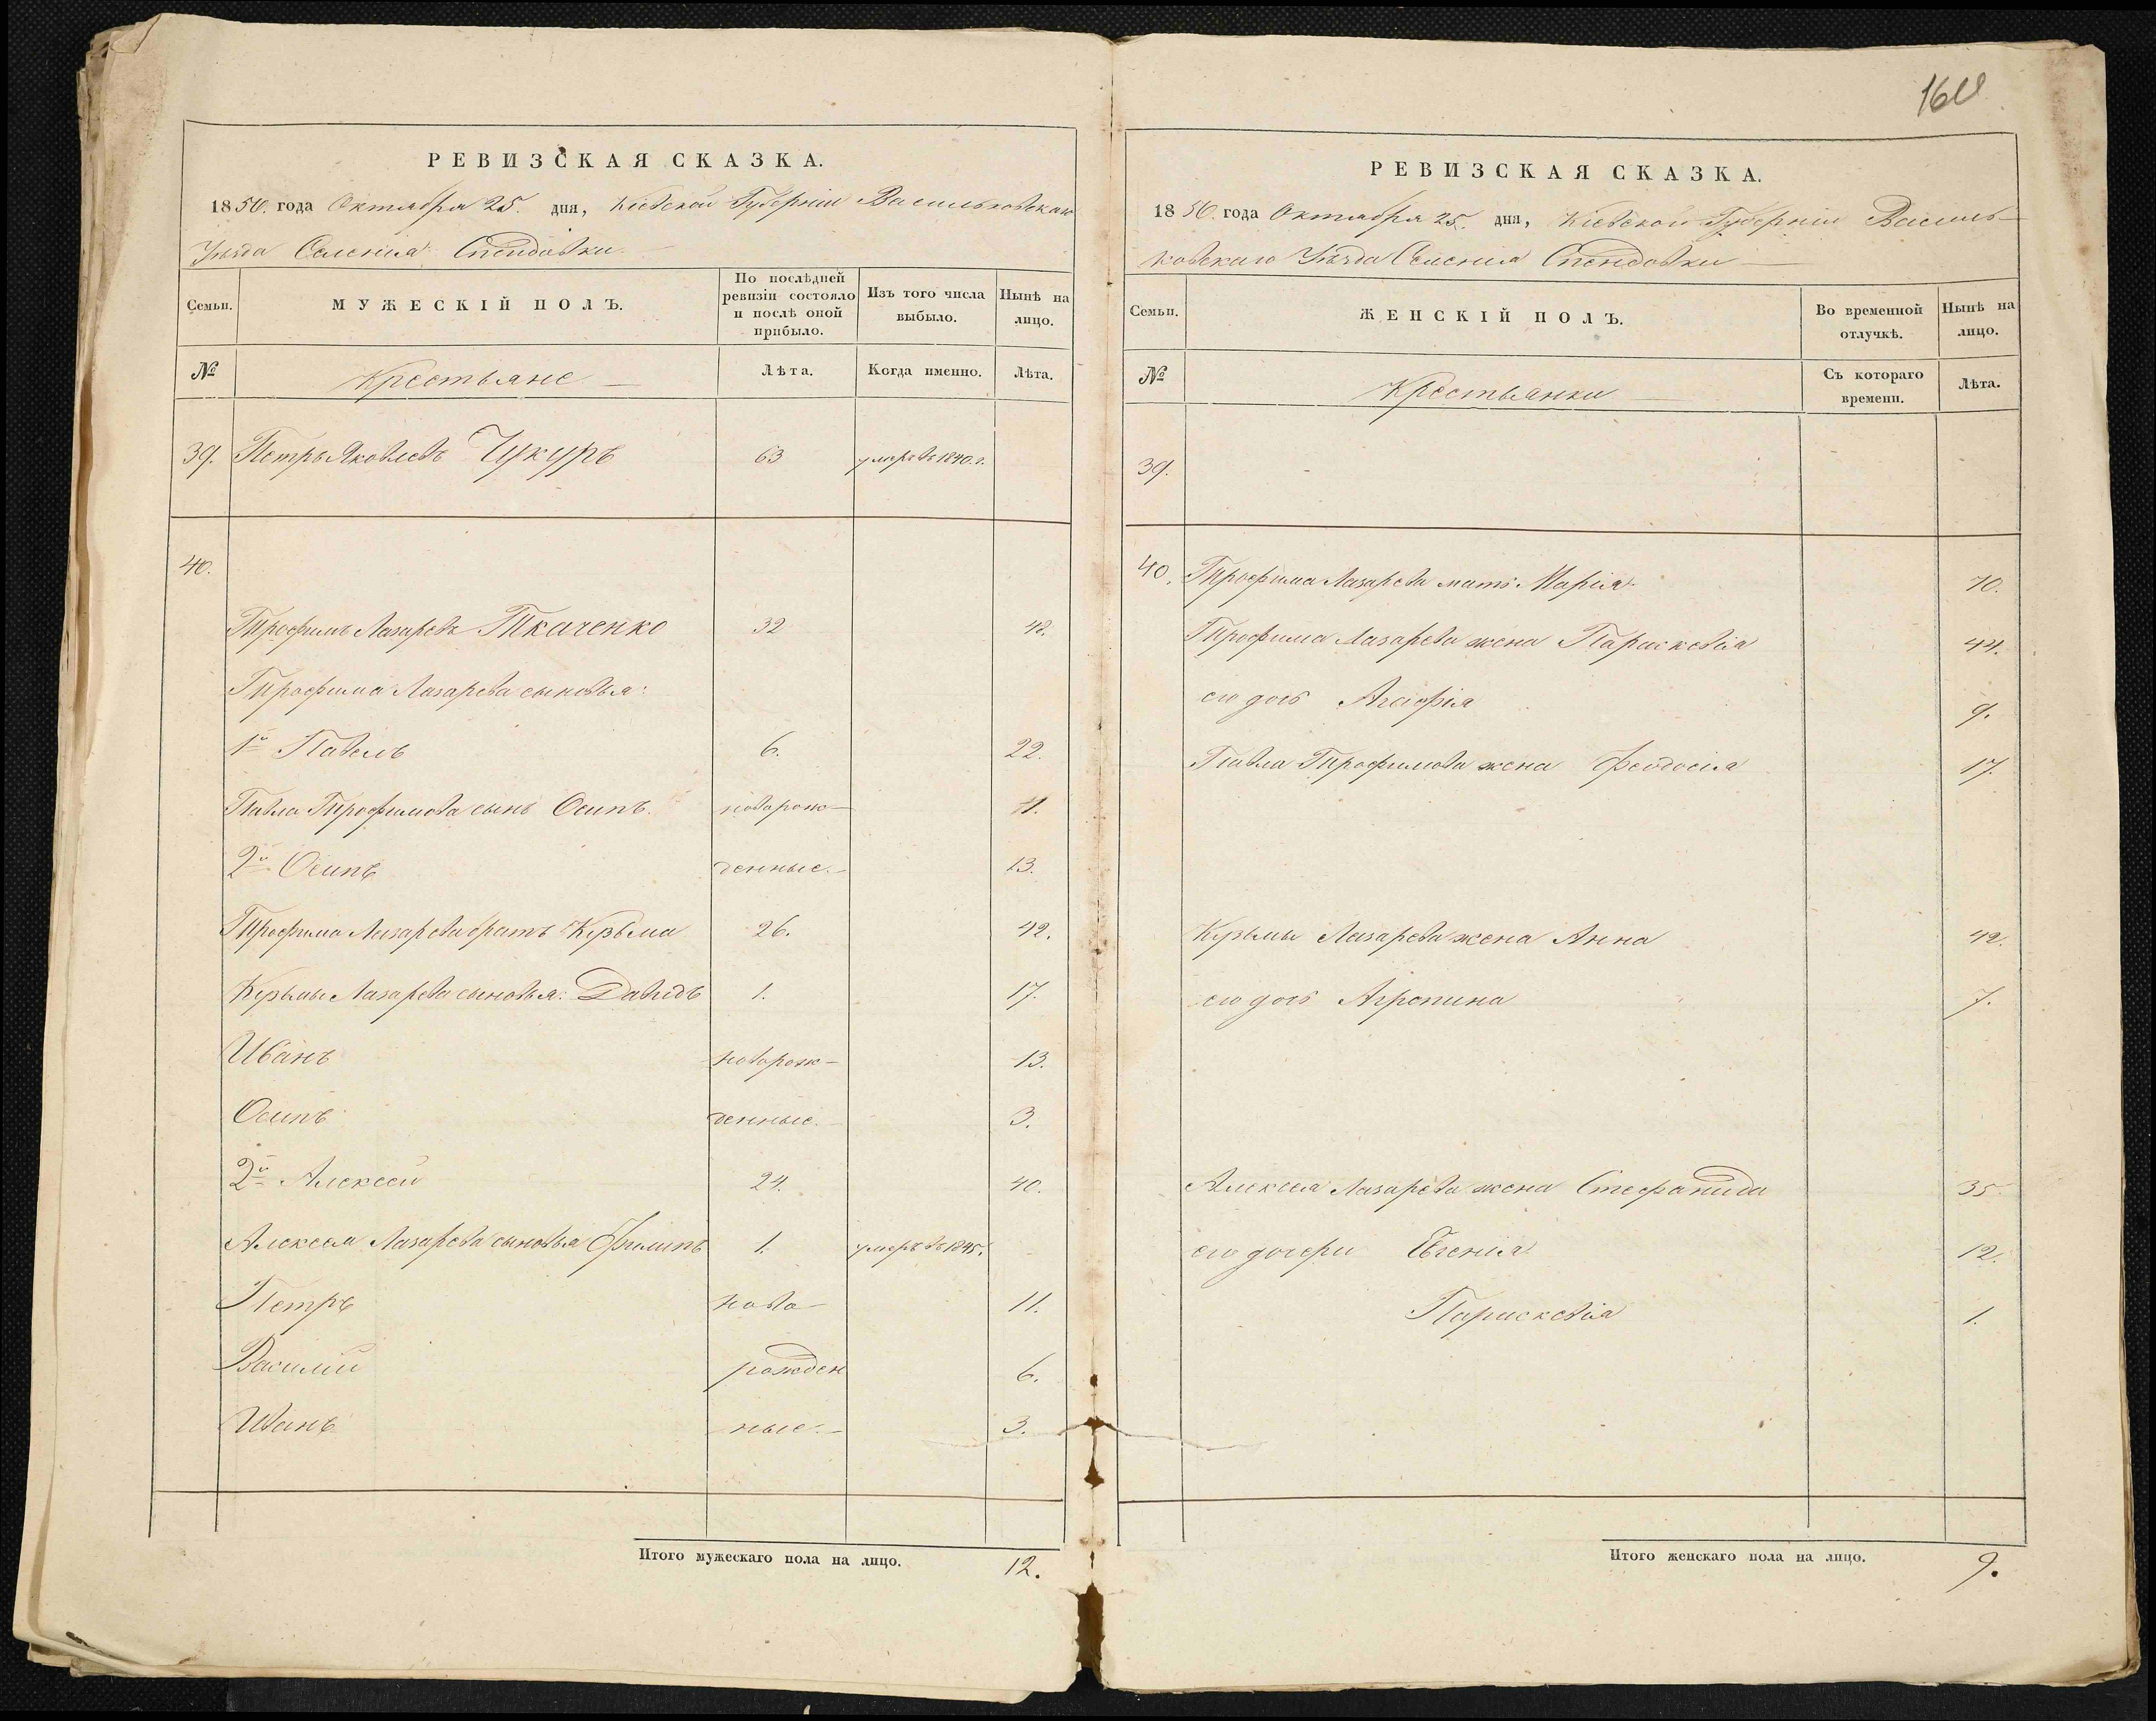 160
РЕВИЗСКАЯ СКАЗКА.
1850. года Октября 25. дня, Кіевской Губерніи Васильковскаго
Уѣзда Селенія Спендовки
Семьи. МУЖЕСКІЙ ПОЛЪ. По послѣдней ревизіи состояло и послѣ оной прибыло. Изъ того числа выбыло. Нынѣ на лицо.
№ Крестьяне Лѣта. Когда именно. Лѣта.
39. Петръ Яковлевъ Чукуръ 63 умеръ въ 1840. г.
40.
Трофимъ Лазаревъ Ткаченко 32 48.
Трофима Лазарева сыновья:
1й Павелъ 6. 22.
Павла Трофимова сынъ Осипъ. новорож-
2й Осипъ денные. 13.
Трофима Лазарева братъ Кузьма 26. 42.
Кузьмы Лазарева сыновья: Давидъ 1. 17.
Иванъ новорож- 13.
Осипъ денные. 3.
2й Алексей 24. 40.
Алексея Лазарева сыновья Филипъ 1. умеръ въ 1845.
Петръ ново- 11.
Василій рожден 6.
Иванъ ные. 3.
Итого мужескаго пола на лицо. 12.
РЕВИЗСКАЯ СКАЗКА.
1850. года Октября 25. дня, Кіевской Губерніи Василь-
ковскаго Уѣзда Селенія Спендовки
Семьи. ЖЕНСКІЙ ПОЛЪ. Во временной отлучкѣ. Нынѣ на лицо.
№ Крестьянки Съ котораго времени. Лѣта.
39.
40. Трофима Лазарева мать Марія 70.
Трофима Лазарева жена Параскевія 44.
его дочь Агафія 9.
Павла Трофимова жена Феодосія 17.
Кузьмы Лазарева жена Анна 42.
его дочь Агрепина 7.
Алексея Лазарева жена Стефанида 35
его дочери Евгенія 12.
Параскевія 1.
Итого женскаго пола на лицо. 9.